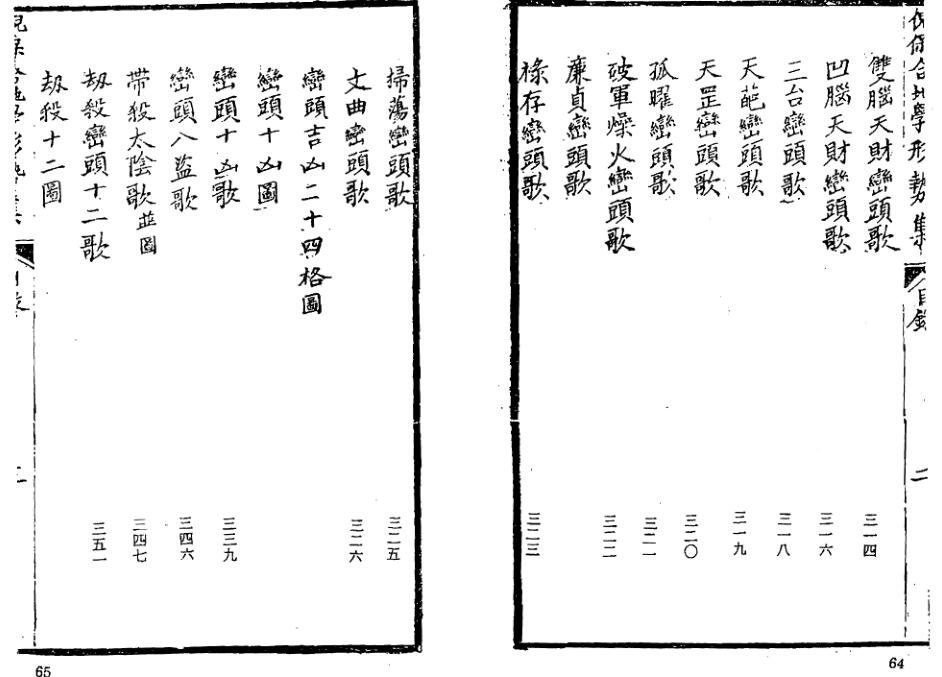 合地學形勢集 目錄 二
雙腦天財巒頭歌 三一四
凹腦天財巒頭歌 三一六
三台巒頭歌 三一八
天葩巒頭歌 三一九
天罡巒頭歌 三二〇
孤曜巒頭歌 三二一
破軍燥火巒頭歌 三二二
廉貞巒頭歌
祿存巒頭歌 三二三
64
掃蕩巒頭歌 三二五
文曲巒頭歌 三二六
巒頭吉凶二十四格圖
巒頭十凶圖
巒頭十凶歌 三三九
巒頭八盜歌 三四六
帶殺太陰歌並圖 三四七
刼殺巒頭十二歌 三五一
刼殺十二圖
65